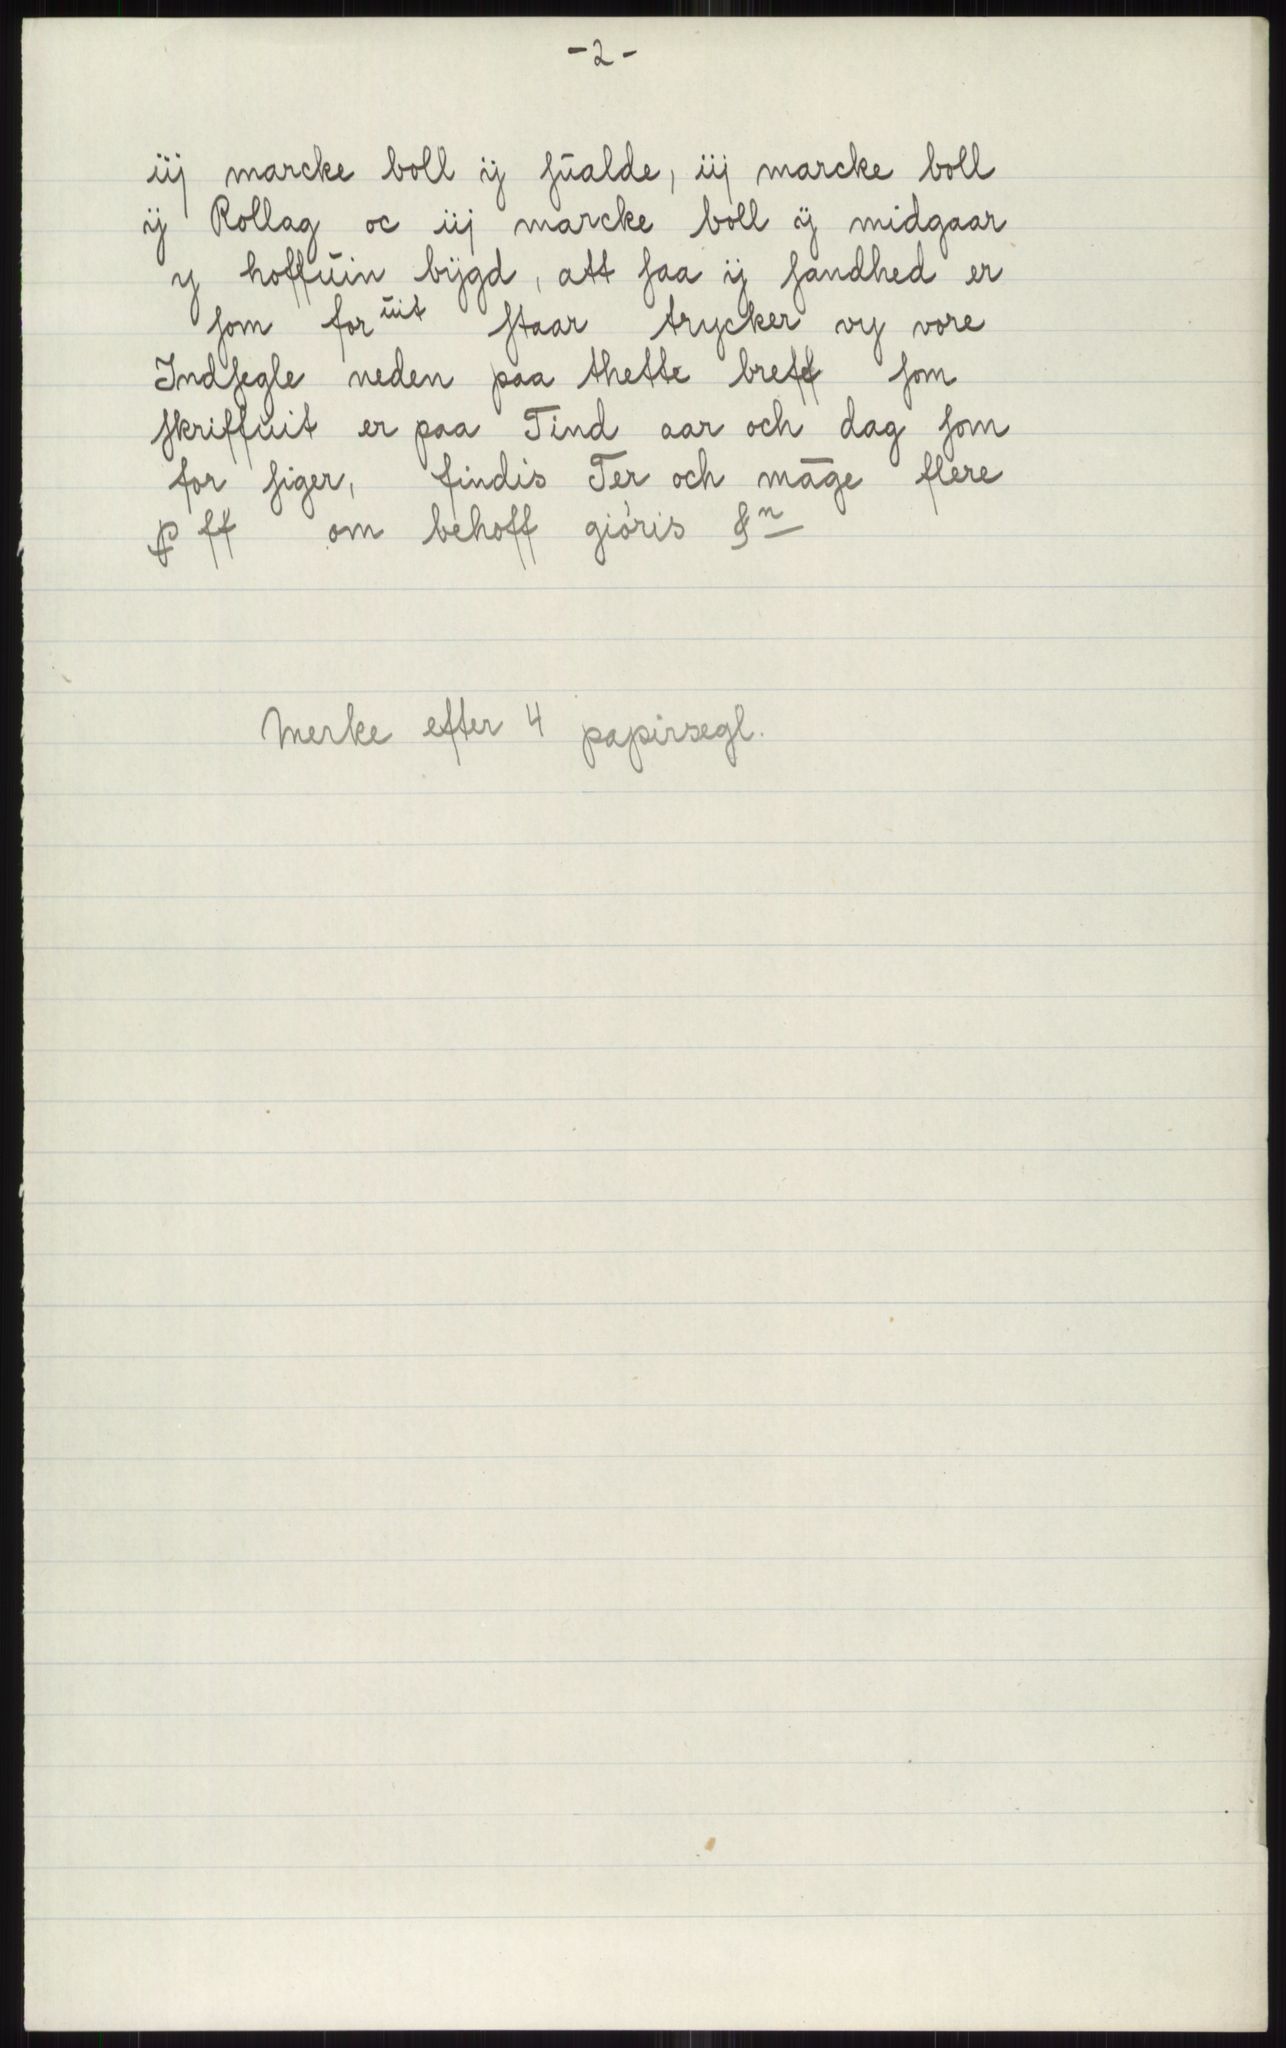 -2-
iij marcke boll ÿ ſūalde, iij marcke boll
ÿ Rollag oc iij marcke boll ÿ midgaar
y hoffūin bÿgd, att ſaa ÿ ſandhed er
ſom for ūit ſtaar trycker vy vore
Indſegle neden paa thette breff ſom
ſkriffūit er paa Tind aar och dag ſom
for ſiger, findis Ter och māge flere
ff om behoff gióris
Merke efter 4 papirsegl.